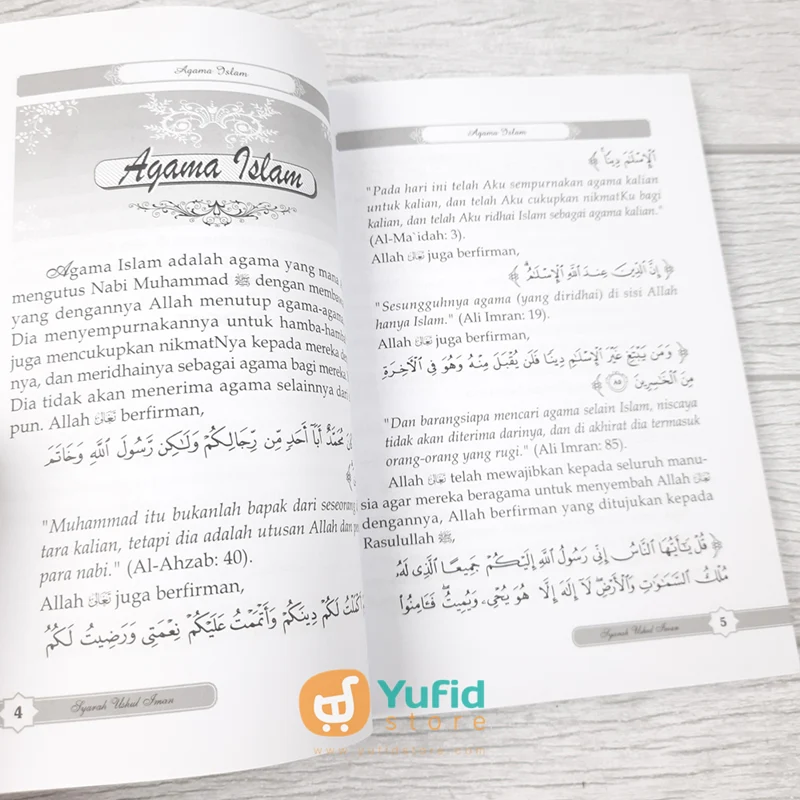 Agama Islam
Agama Islam
Agama Islam adalah agama yang mana
mengutus Nabi Muhammad ﷺ dengan
yang dengannya Allah menutup agama-agama
Dia menyempurnakannya untuk
juga mencukupkan nikmatNya kepada mereka
nya, dan meridhainya sebagai agama bagi mereka
Dia tidak akan menerima agama selainnya
pun. Allah تعالى berfirman,
مُحَمَّدٌ أَبَآ أَحَدٍ مِّن رِّجَالِكُمْ وَلَٰكِن رَّسُولَ ٱللَّهِ وَخَاتَمَ
"Muhammad itu bukanlah bapak dari seseorang
tara kalian, tetapi dia adalah utusan Allah dan
para nabi." (Al-Ahzab: 40).
Allah تعالى juga berfirman,
أَكْمَلْتُ لَكُمْ دِينَكُمْ وَأَتْمَمْتُ عَلَيْكُمْ نِعْمَتِى وَرَضِيتُ لَكُمُ
4
Syarah Ushul Iman
Agama Islam
ٱلْإِسْلَٰمَ دِينًا ﴾
"Pada hari ini telah Aku sempurnakan agama kalian
untuk kalian, dan telah Aku cukupkan nikmatKu bagi
kalian, dan telah Aku ridhai Islam sebagai agama kalian."
(Al-Ma`idah: 3).
Allah تعالى juga berfirman,
﴿ إِنَّ ٱلدِّينَ عِندَ ٱللَّهِ ٱلْإِسْلَٰمُ ﴾
"Sesungguhnya agama (yang diridhai) di sisi Allah
hanya Islam." (Ali Imran: 19).
Allah تعالى juga berfirman,
﴿ وَمَن يَبْتَغِ غَيْرَ ٱلْإِسْلَٰمِ دِينًا فَلَن يُقْبَلَ مِنْهُ وَهُوَ فِى ٱلْأَخِرَةِ
مِنَ ٱلْخَٰسِرِينَ ٨٥ ﴾
"Dan barangsiapa mencari agama selain Islam, niscaya
tidak akan diterima darinya, dan di akhirat dia termasuk
orang-orang yang rugi." (Ali Imran: 85).
Allah تعالى telah mewajibkan kepada seluruh manu-
sia agar mereka beragama untuk menyembah Allah تعالى
dengannya, Allah berfirman yang ditujukan kepada
Rasulullah ﷺ,
﴿ قُلْ يَٰٓأَيُّهَا ٱلنَّاسُ إِنِّى رَسُولُ ٱللَّهِ إِلَيْكُمْ جَمِيعًا ٱلَّذِى لَهُۥ
مُلْكُ ٱلسَّمَٰوَٰتِ وَٱلْأَرْضِ لَآ إِلَٰهَ إِلَّا هُوَ يُحْىِۦ وَيُمِيتُ فَـَٔامِنُوا۟
Syarah Ushul Iman
5
Yufid
store